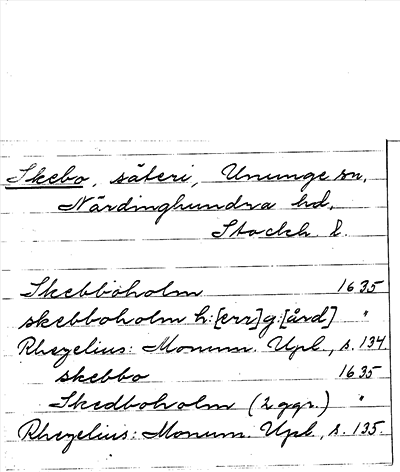 Skebo, säteri, Ununge sn,
Närdinghundra hd,
Stockh l.
Skebboholm 1635
skebboholm h:[err]g:[ård] "
Rhezelius: Monum. Upl., s. 134
skebbo 1635
Skedboholm (2 ggr.) "
Rhezelius: Monum. Upl., s. 135.